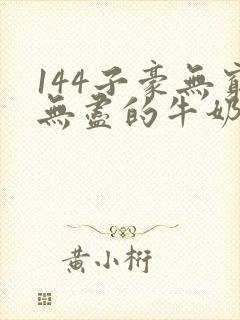 144子豪無窮
無盡的牛奶
黃小桁